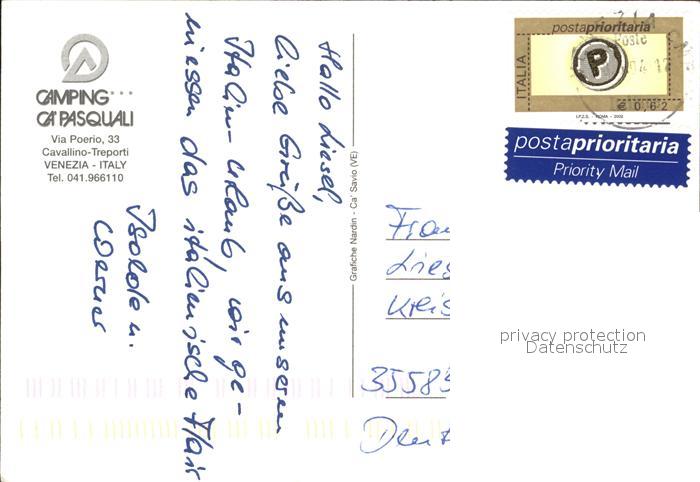 CAMPING***
CA'PASQUALI
Via Poerio, 33
Cavallino-Treporti
VENEZIA - ITALY
Tel. 041.966110
Hallo Liesel,
liebe Grüße aus unserm
Italien-Urlaub, wir ge-
niessen das italienische Flair
Isolde u.
Werner
Grafiche Nardin - Ca' Savio (VE)
postaprioritaria
ITALIA
P
Poste
€ 0,62
I.P.Z.S. - ROMA - 2002
postaprioritaria
Priority Mail
Frau
Lies
Kreis
35583
Deut
privacy protection
Datenschutz